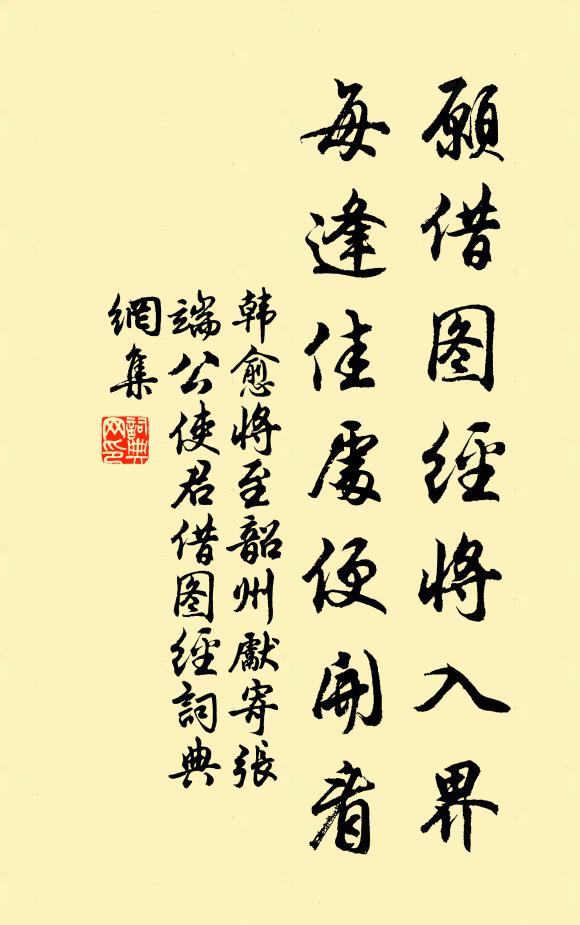 願借图經将入界
每逢佳處便開看
韩愈将至韶州獻寄張
端公使君借图經詞典
網集
詞典
网印